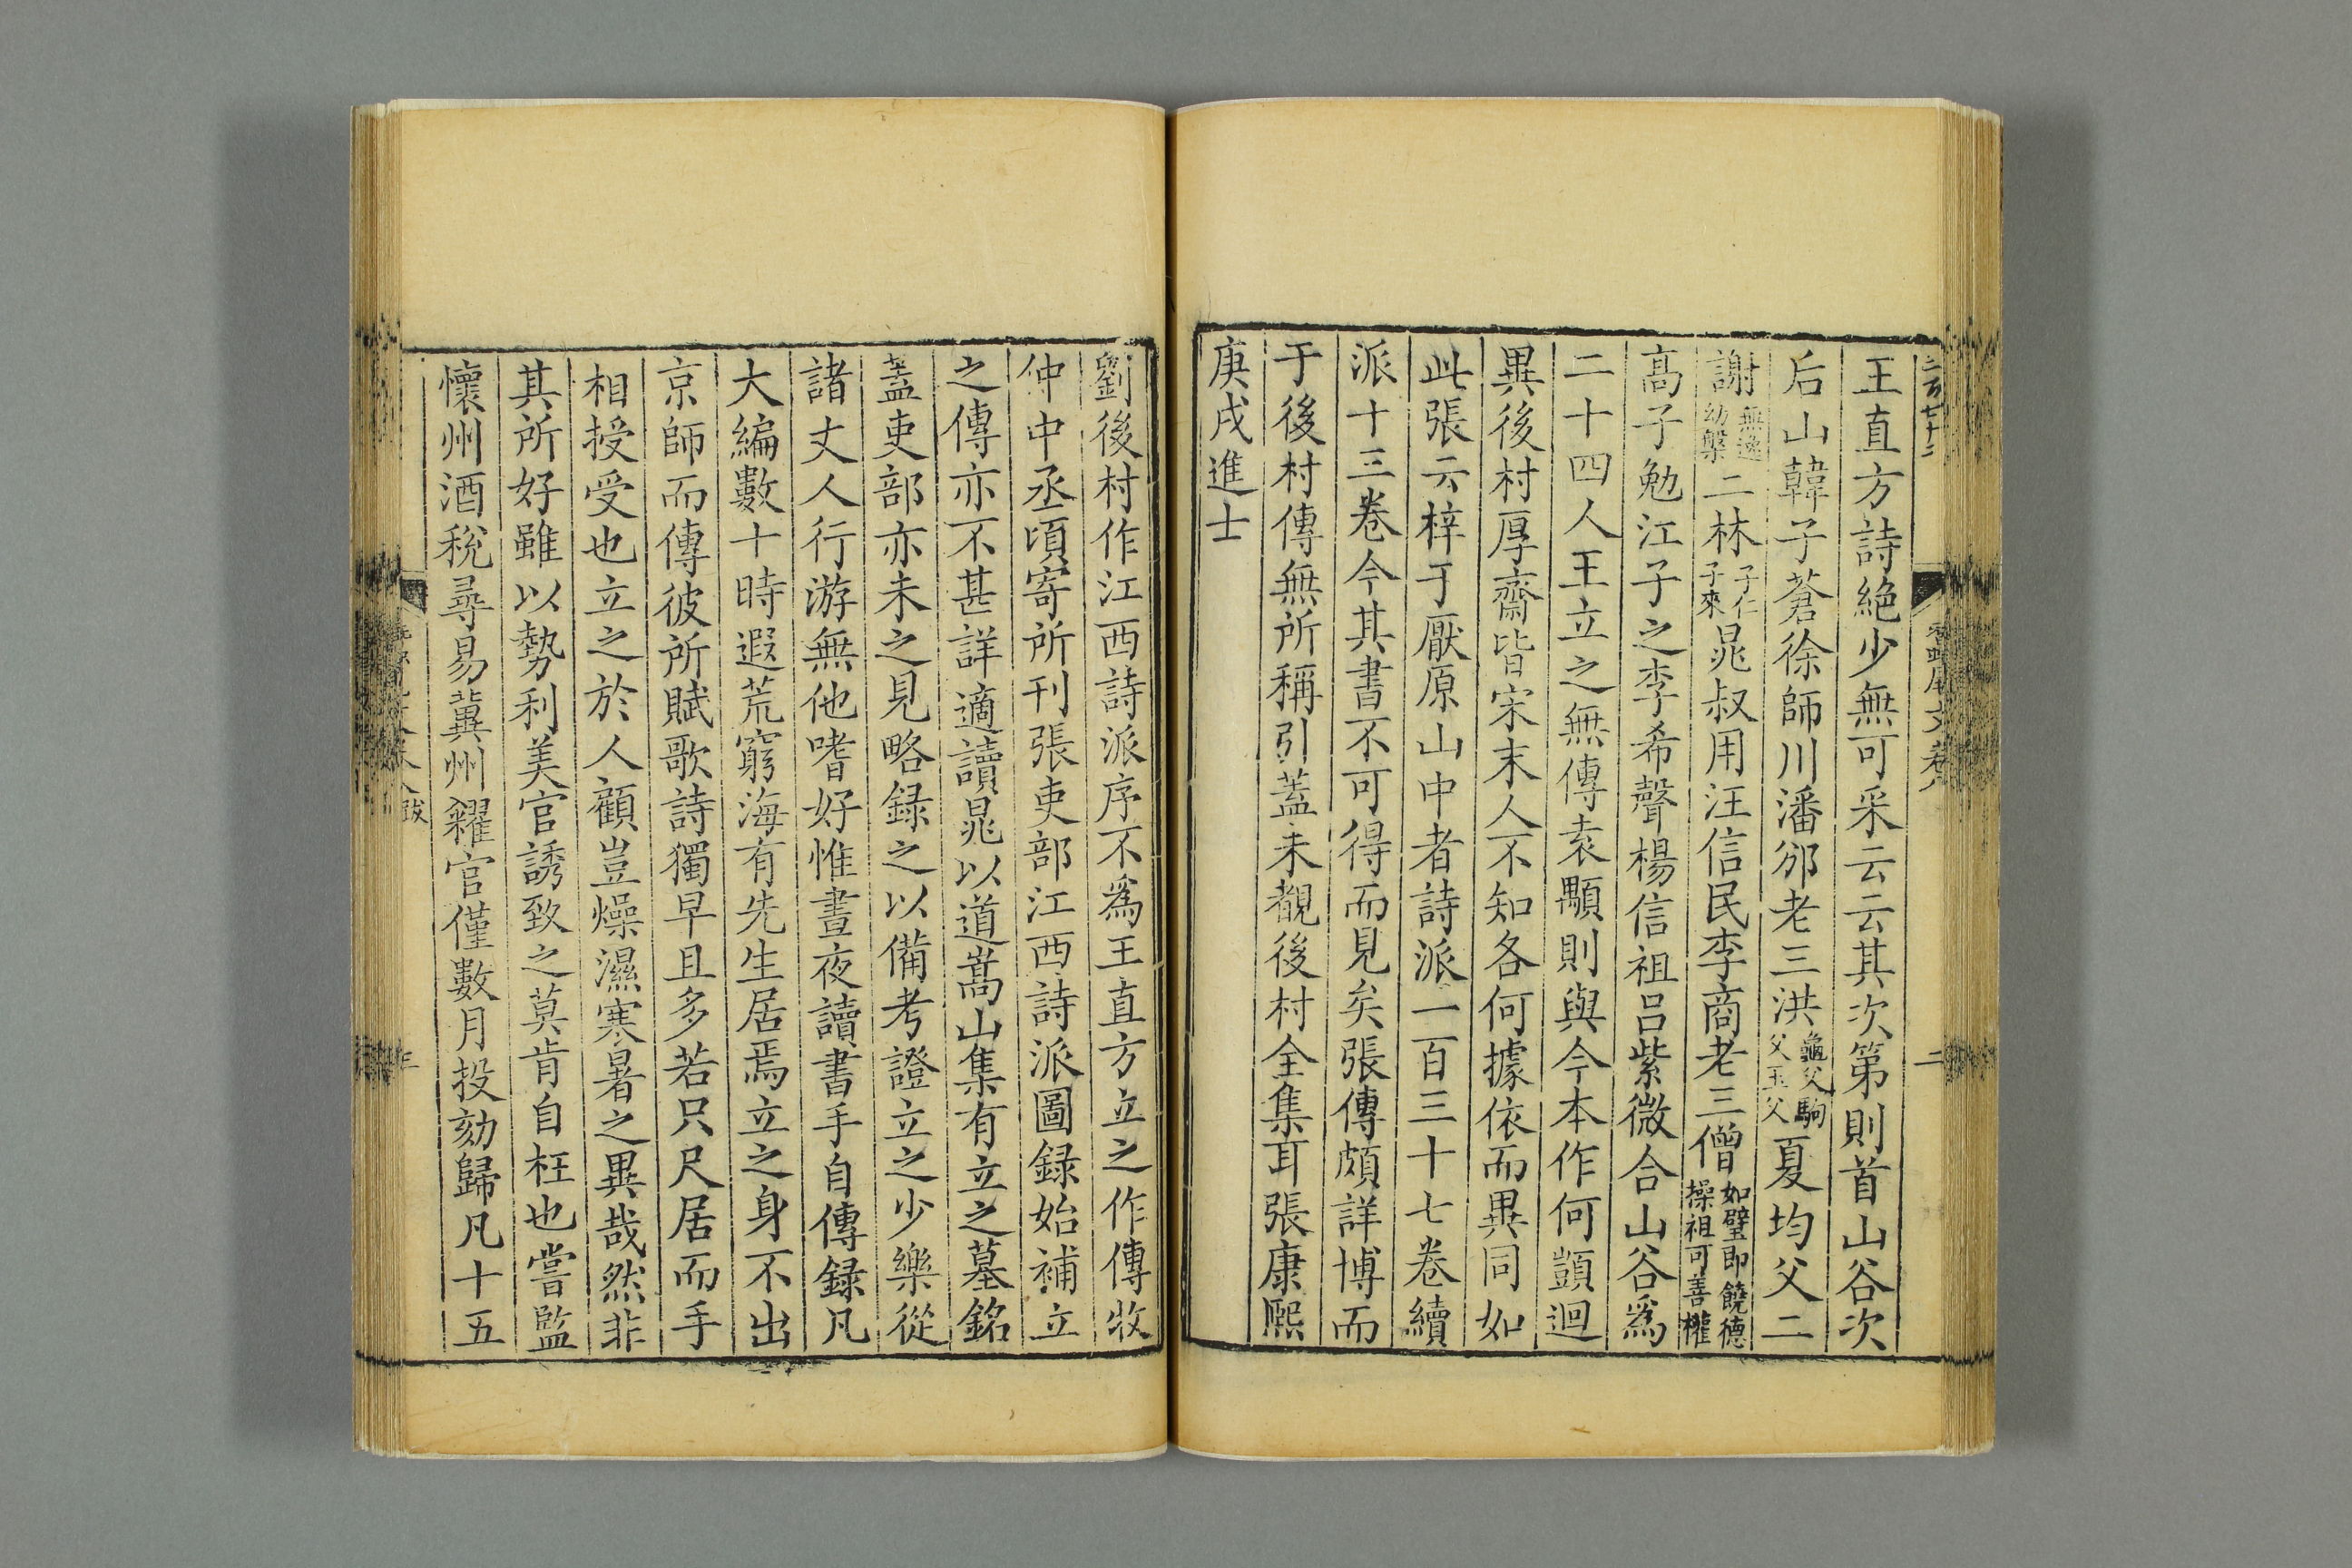 二百七十二
二
王直方詩絶少無可采云云其次第則首山谷次
后山韓子蒼徐師川潘邠老三洪龜父駒父玉父夏均父二
謝無逸幼槃二林子仁子來晁叔用汪信民李商老三僧如璧即饒德操祖可善權
髙子勉江子之李希聲楊信祖吕紫微合山谷爲
二十四人王立之無傳袁顒則與今本作何顗迴
異後村厚齋皆宋末人不知各何據依而異同如
此張云梓于厭原山中者詩派一百三十七卷續
派十三卷今其書不可得而見矣張傳頗詳博而
于後村傳無所稱引蓋未覩後村全集耳張康熈
庚戌進士
劉後村作江西詩派序不爲王直方立之作傳牧
仲中丞頃寄所刊張吏部江西詩派圖録始補立
之傳亦不甚詳適讀晁以道嵩山集有立之墓銘
蓋吏部亦未之見略録之以備考證立之少樂從
諸丈人行游無他嗜好惟晝夜讀書手自傳録凡
大編數十時遐荒窮海有先生居焉立之身不出
京師而傳彼所賦歌詩獨早且多若只尺居而手
相授受也立之於人顧豈燥濕寒暑之異哉然非
其所好雖以勢利美官誘致之莫肯自枉也嘗監
懷州酒稅尋易冀州糴官僅數月投劾歸凡十五
跋
三